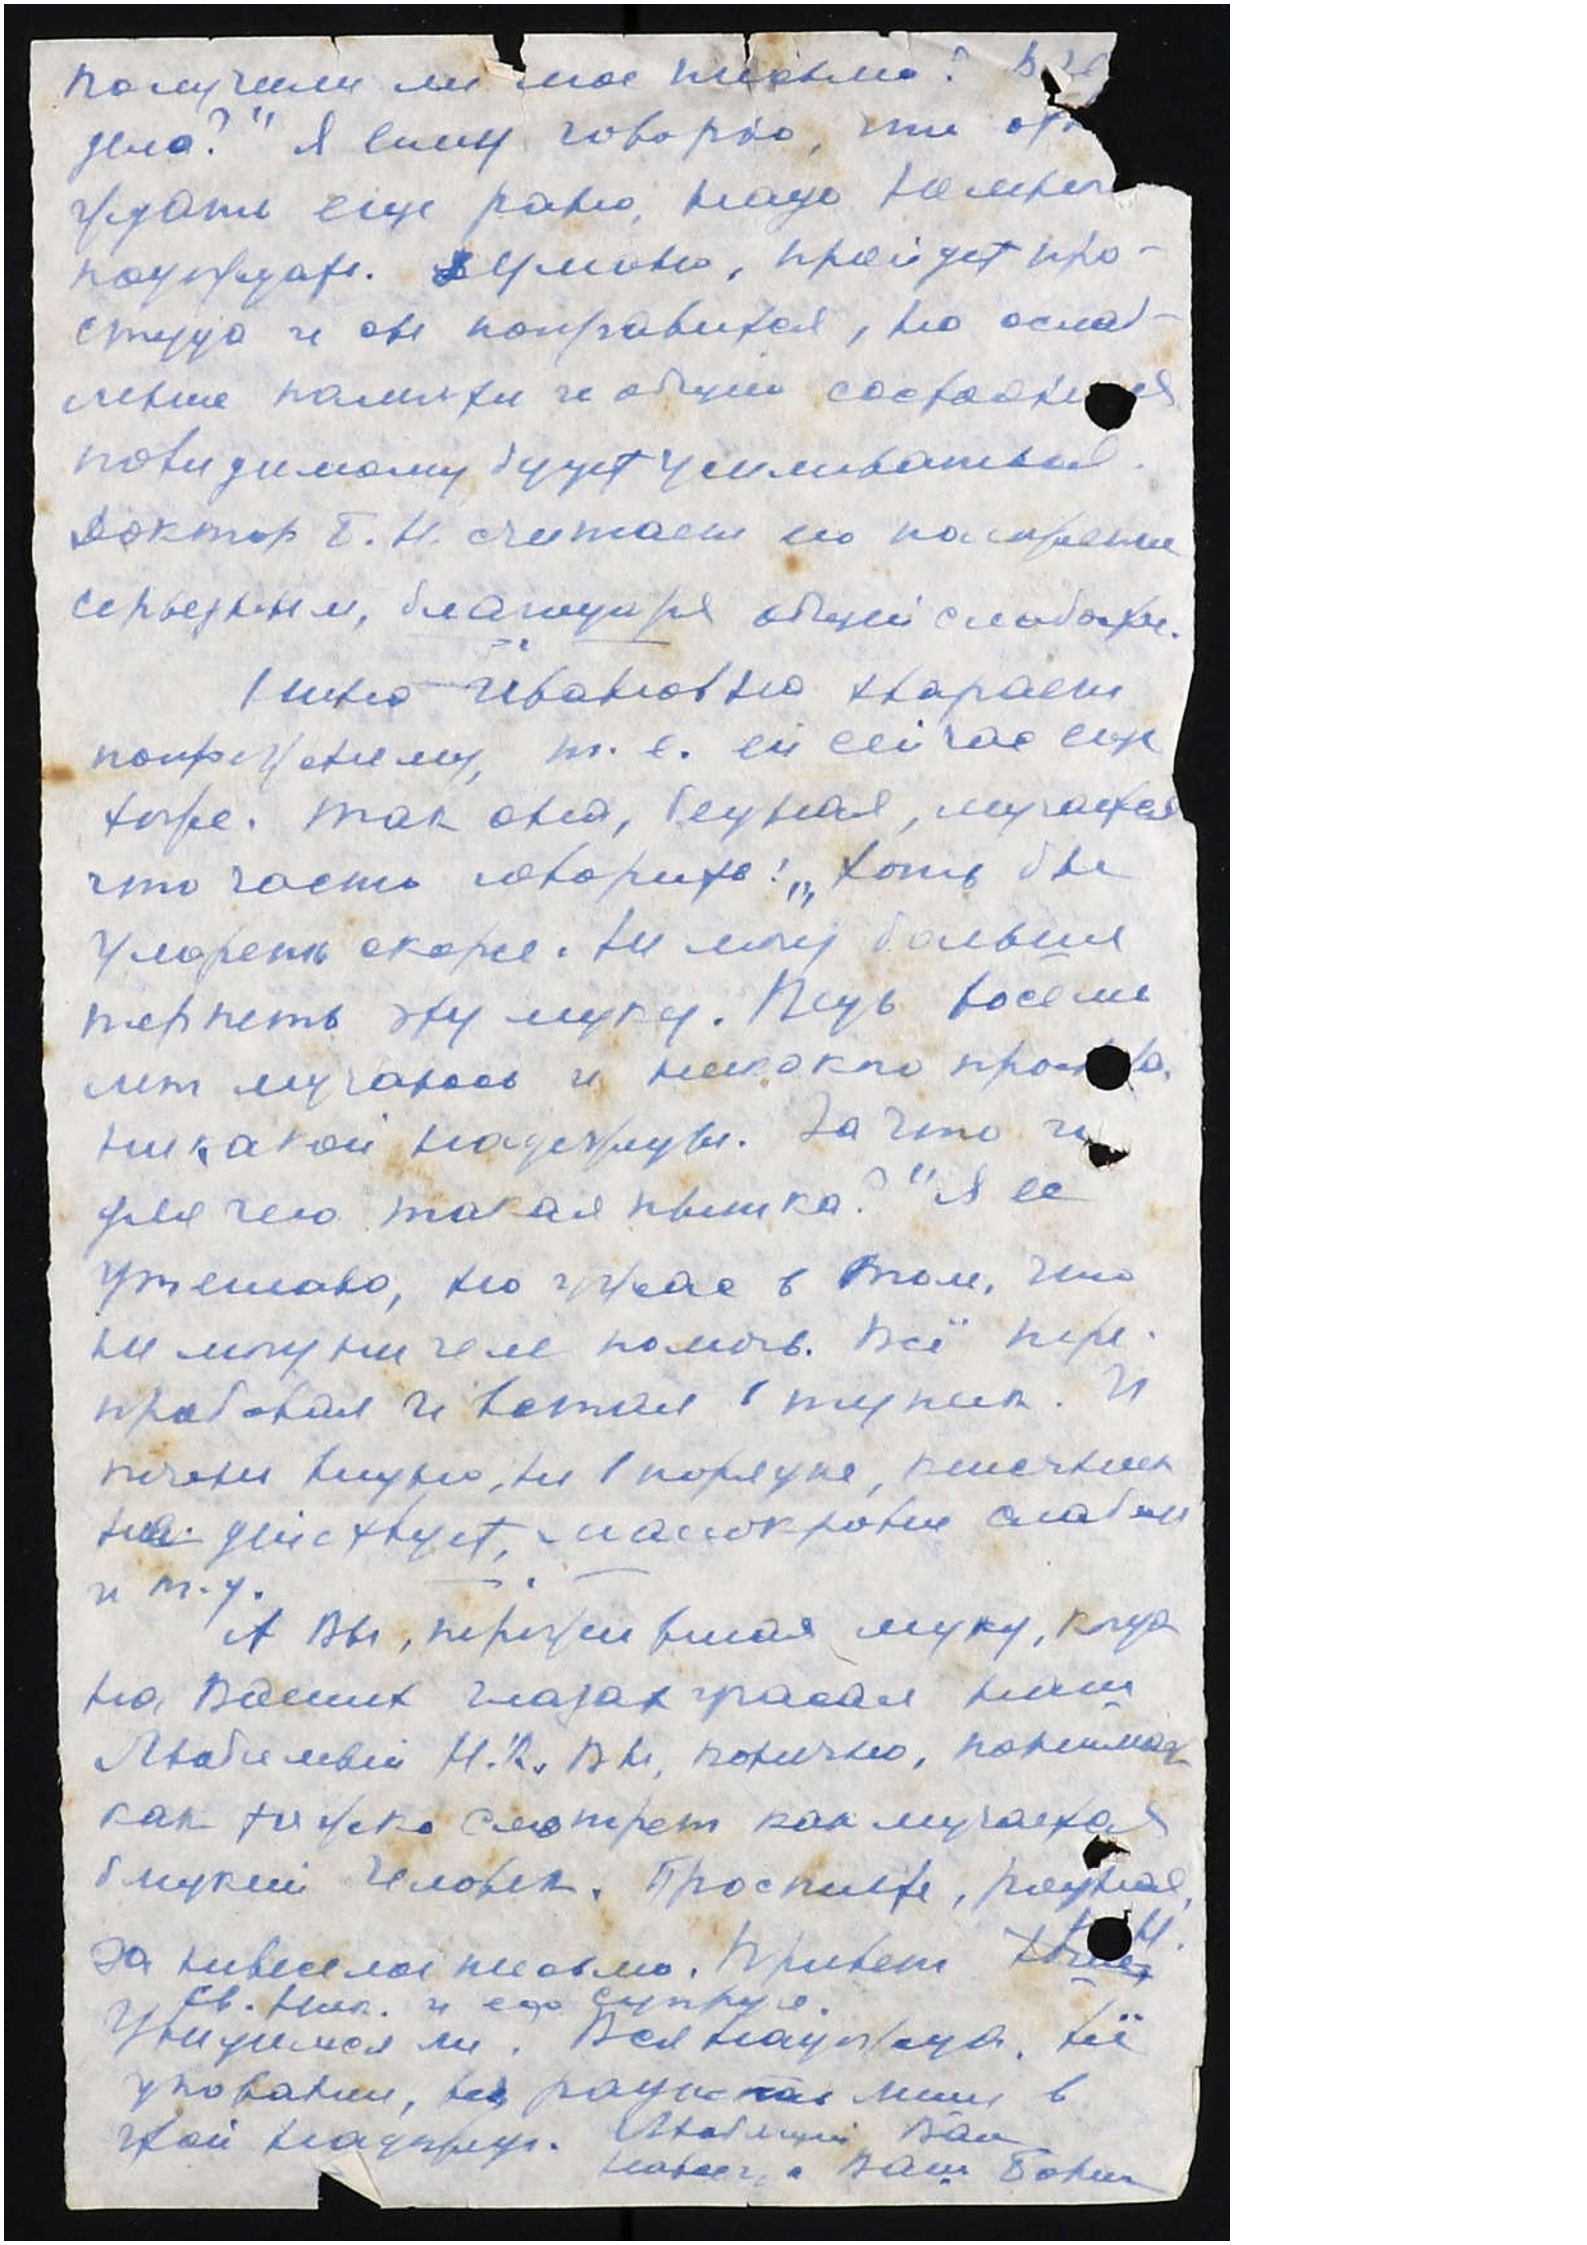 получили ли мое письмо? В че
дело?" Я ему говорю, что от
ждать еще рано, надо немног
подождать. Думаю, пройдет про-
студа и он поправится, но ослаб-
ление памяти и общего состояния
повидимому будет усиливаться.
Доктор Б. Н. считает его положение
серьезным, благодаря общей слабости.
Нина Ивановна хварает
попрежнему, т. е. ей сейчас еще
хуже. Так она, бедная, мучается
что часто говорит: „Хоть бы
умереть скорее. Не могу больше
терпеть эту муку. Ведь восемь
лет мучаюсь и никакого
никакой надежды. За что и
для чего такая пытка?" Я ее
утешаю, но ужас в том, что
не могу ничем помочь. Всё пере-
пробовал и встал в тупик. И
печень видно, не в порядке, кишечник
не действует, малокровие слабое
и т.д.
А Вы, пережившая муку, когда
на Ваших глазах угасал наш
Любимый Н.К. Вы, конечно, понимает
как тяжко смотреть как мучается
близкий человек. Простите, родная,
за невеселое письмо. Привет
Св. Ник. и его супруге.
Увидимся ли. Вся надежда. Всё
упование, вся радость лишь в
этой надежде. Любящий Вас
навсегда Ваш Борис